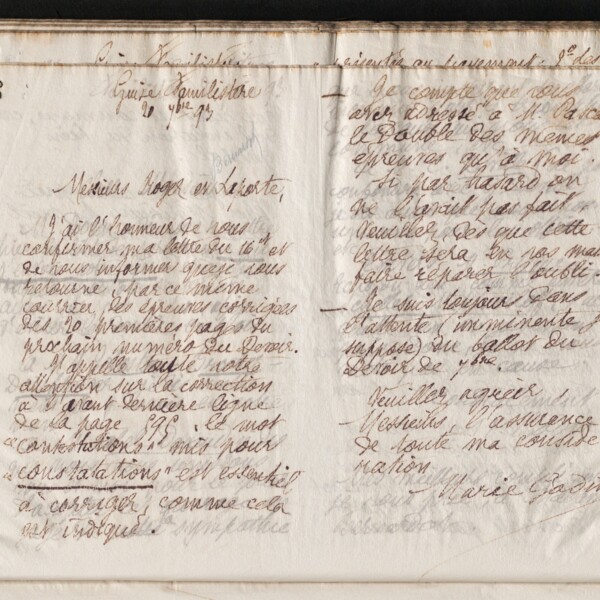 Guise Familistère
20 7bre 93
Messieurs Roger et Laporte,
J'ai l'honneur de vous
confirmer ma lettre du 16 ct et
de vous informer que je vous
retourne par ce même
courrier, les épreuves corrigées
des 20 premières pages du
prochain numéro du Devoir.
J'appelle toute votre
attention sur la correction
à l'avant dernière ligne
de la page 595. Le mot
"contestations" mis pour
"constatations" est essentiel
à corriger, comme cela
est indiqué.
— Je compte que vous
avez adressé à Mr Pasca
le double des mêmes
épreuves qu'à moi.
Si par hasard on
ne l'avait pas fait
veuillez, dès que cette
lettre sera en vos mai
faire réparer l'oubli.
— Je suis toujours dans
l'attente (imminente je
suppose) du ballot du
Devoir de 7bre.
Veuillez agréer,
Messieurs, l'assurance
de toute ma considé
ration
Marie Godin